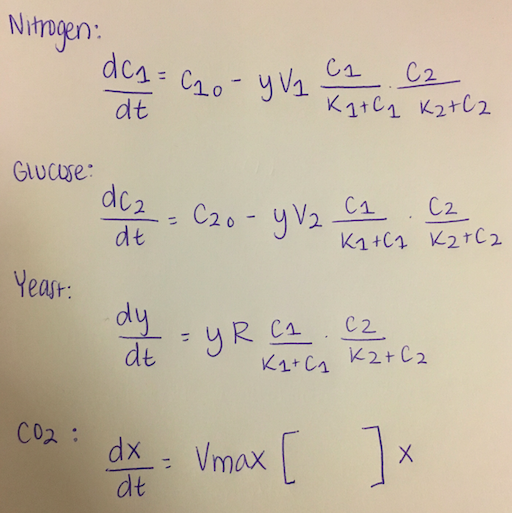 Nitrogen:
dC1/dt = C10 - yV1 C1/(K1+C1) · C2/(K2+C2)
Glucose:
dC2/dt = C20 - yV2 C1/(K1+C1) · C2/(K2+C2)
Yeast:
dy/dt = yR C1/(K1+C1) · C2/(K2+C2)
CO2:
dx/dt = Vmax [ ] x